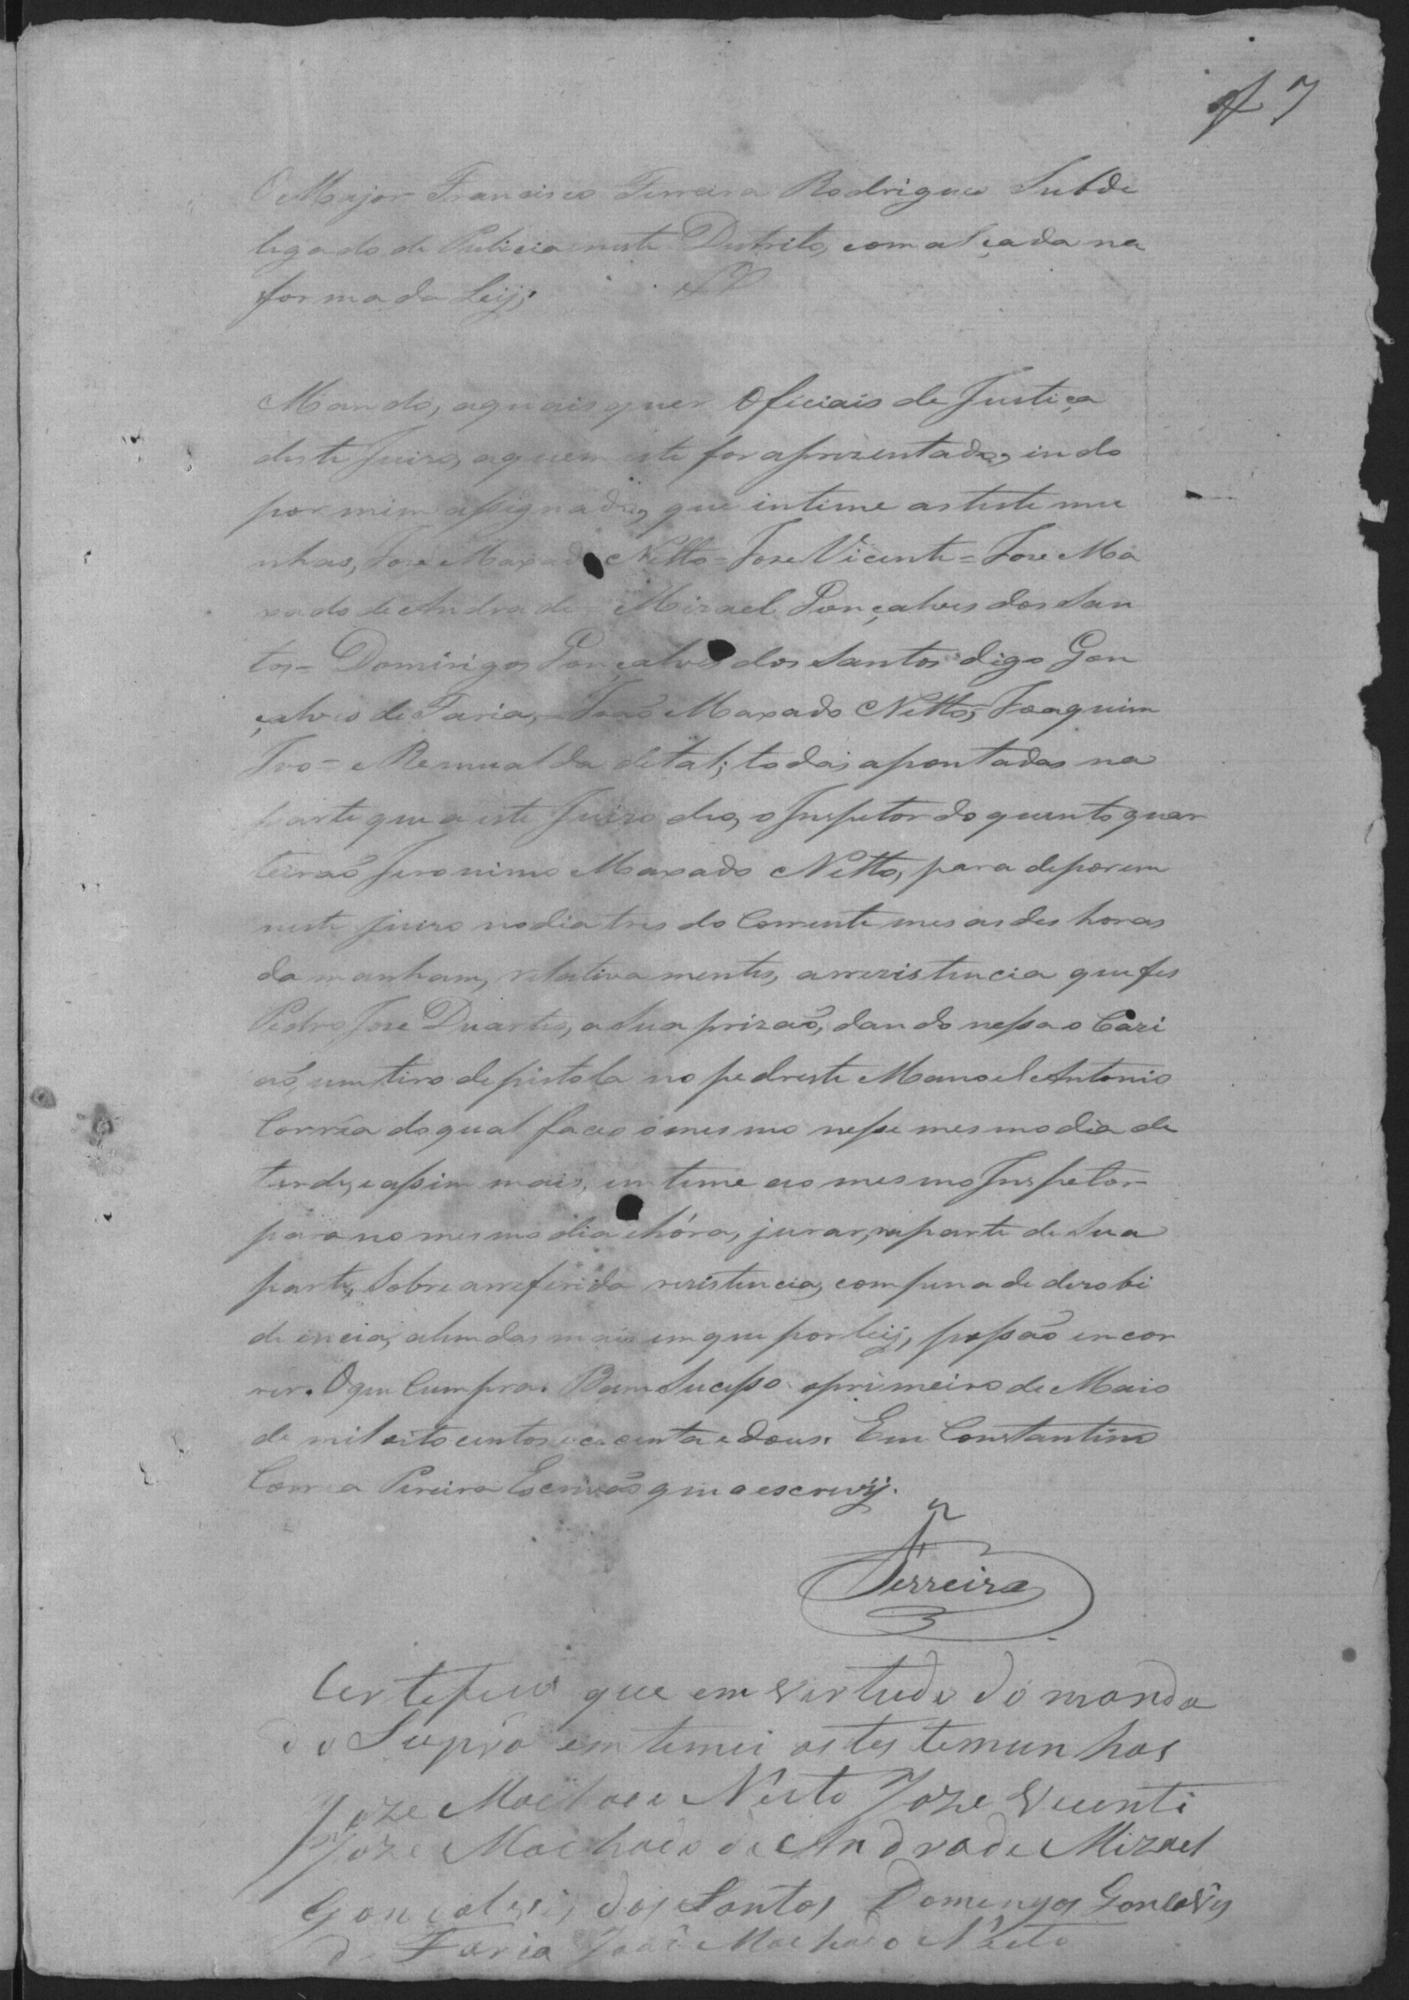 f 7
O Major Francisco Ferreira Rodrigues Subde
legado de Pulicia neste Destrito, com alçada na
forma da Leij;
Mando, aquais quer Oficiais de Justiça
deste Juizo, aquem este for aprezentado, indo
por mim assignado, que intime as teste mu
nhas, Joze Maxado Netto = Joze Vicente = Joze Ma
xado de Andrade = Mizael Gonçalves dos San
tos = Domingos Gonçalves dos Santos digo Gon
çalves de Faria, = João Maxado Netto, Joaquim
Ivo = e Remualda de tal; todas apontadas na
parte que a este Juizo deo, o Inspetor do quinto quar
teirão Jeronimo Maxado Netto, para deporem
neste juizo no dia tres do Corrente mes as des horas
da manham, relativamente, a rrezistencia que fes
Pedro Joze Duarte, a Sua prizão, dando nessa o Cazi
ão, um tiro de pistola no pedreste Manoel Antonio
Corrêa do qual faceo o mesmo nesse mesmo dia de
tarde, e assim mais, intime ao mesmo Inspetor
para no mesmo dia e hóra, jurar, parte de Sua
parte, Sobre a rreferida rezistencia, com pena de dezobi
diencia, alem das mais em que por leij, possão encor
rer. O que Cumpra. Bom Sucesso o primeiro de Maio
de mil oito centos e cecenta e dous. Eu Constantino
Correa Pereira Escrivão que o escrevij.
Ferreira
Certefico que em vertude do manda
do Supra em temei as tes temunhas
Joze Machado Neto Joze Vicente
Joze Machado de Andrade Mizael
Goncalves dos Santos Domingos Goncalves
de Faria João Machado Neto